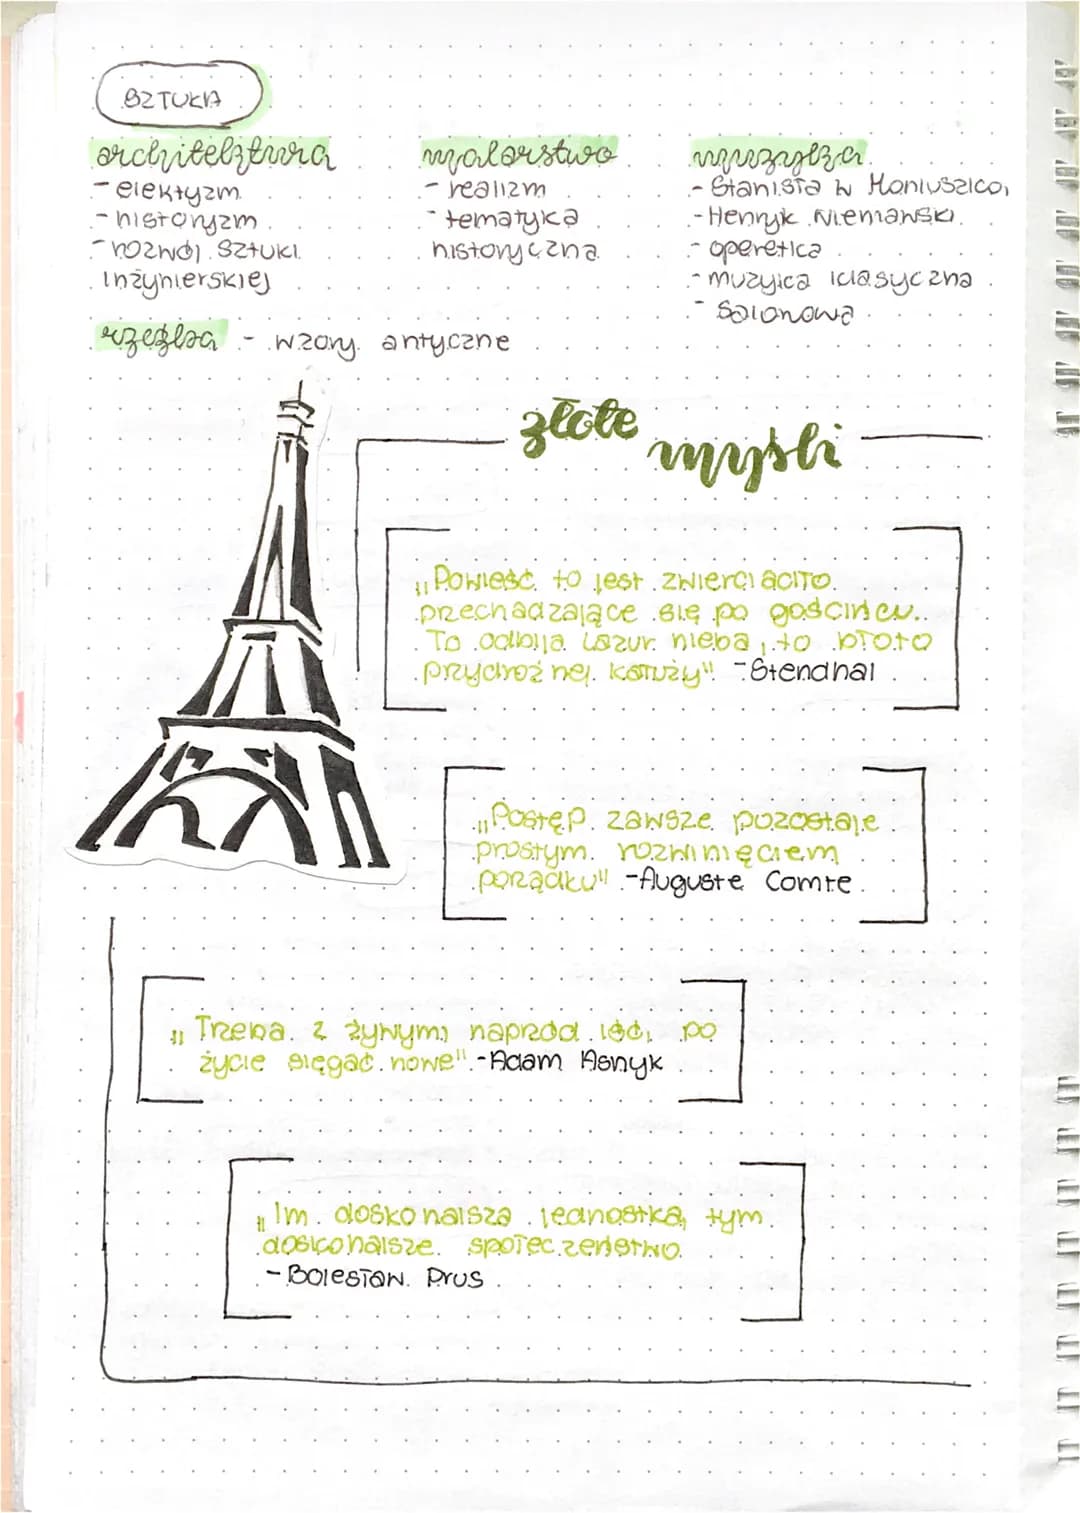 SZTUKA
architektura
- elektyzm
- historyzm
- rozwój sztuki
inżynierskiej
malarstwo
- realizm
- tematyka
historyczna
muzyka
- Stanisław Moniuszko,
- Henryk Wieniawski
- operetka
- muzyka klasyczna
- salonowa
rzeźba - wzory antyczne
złote
myśli
„Powieść to jest zwierciadło
przechadzające się po gościńcu.
To odbija lazur nieba, to błoto
przydrożnej kałuży" - Stendhal
„Postęp zawsze pozostaje
prostym rozwinięciem
porządku" - Auguste Comte
„Trzeba z żywymi naprzód iść, po
życie sięgać nowe" - Adam Asnyk
„Im doskonalsza jednostka, tym
doskonalsze społeczeństwo
- Bolesław Prus